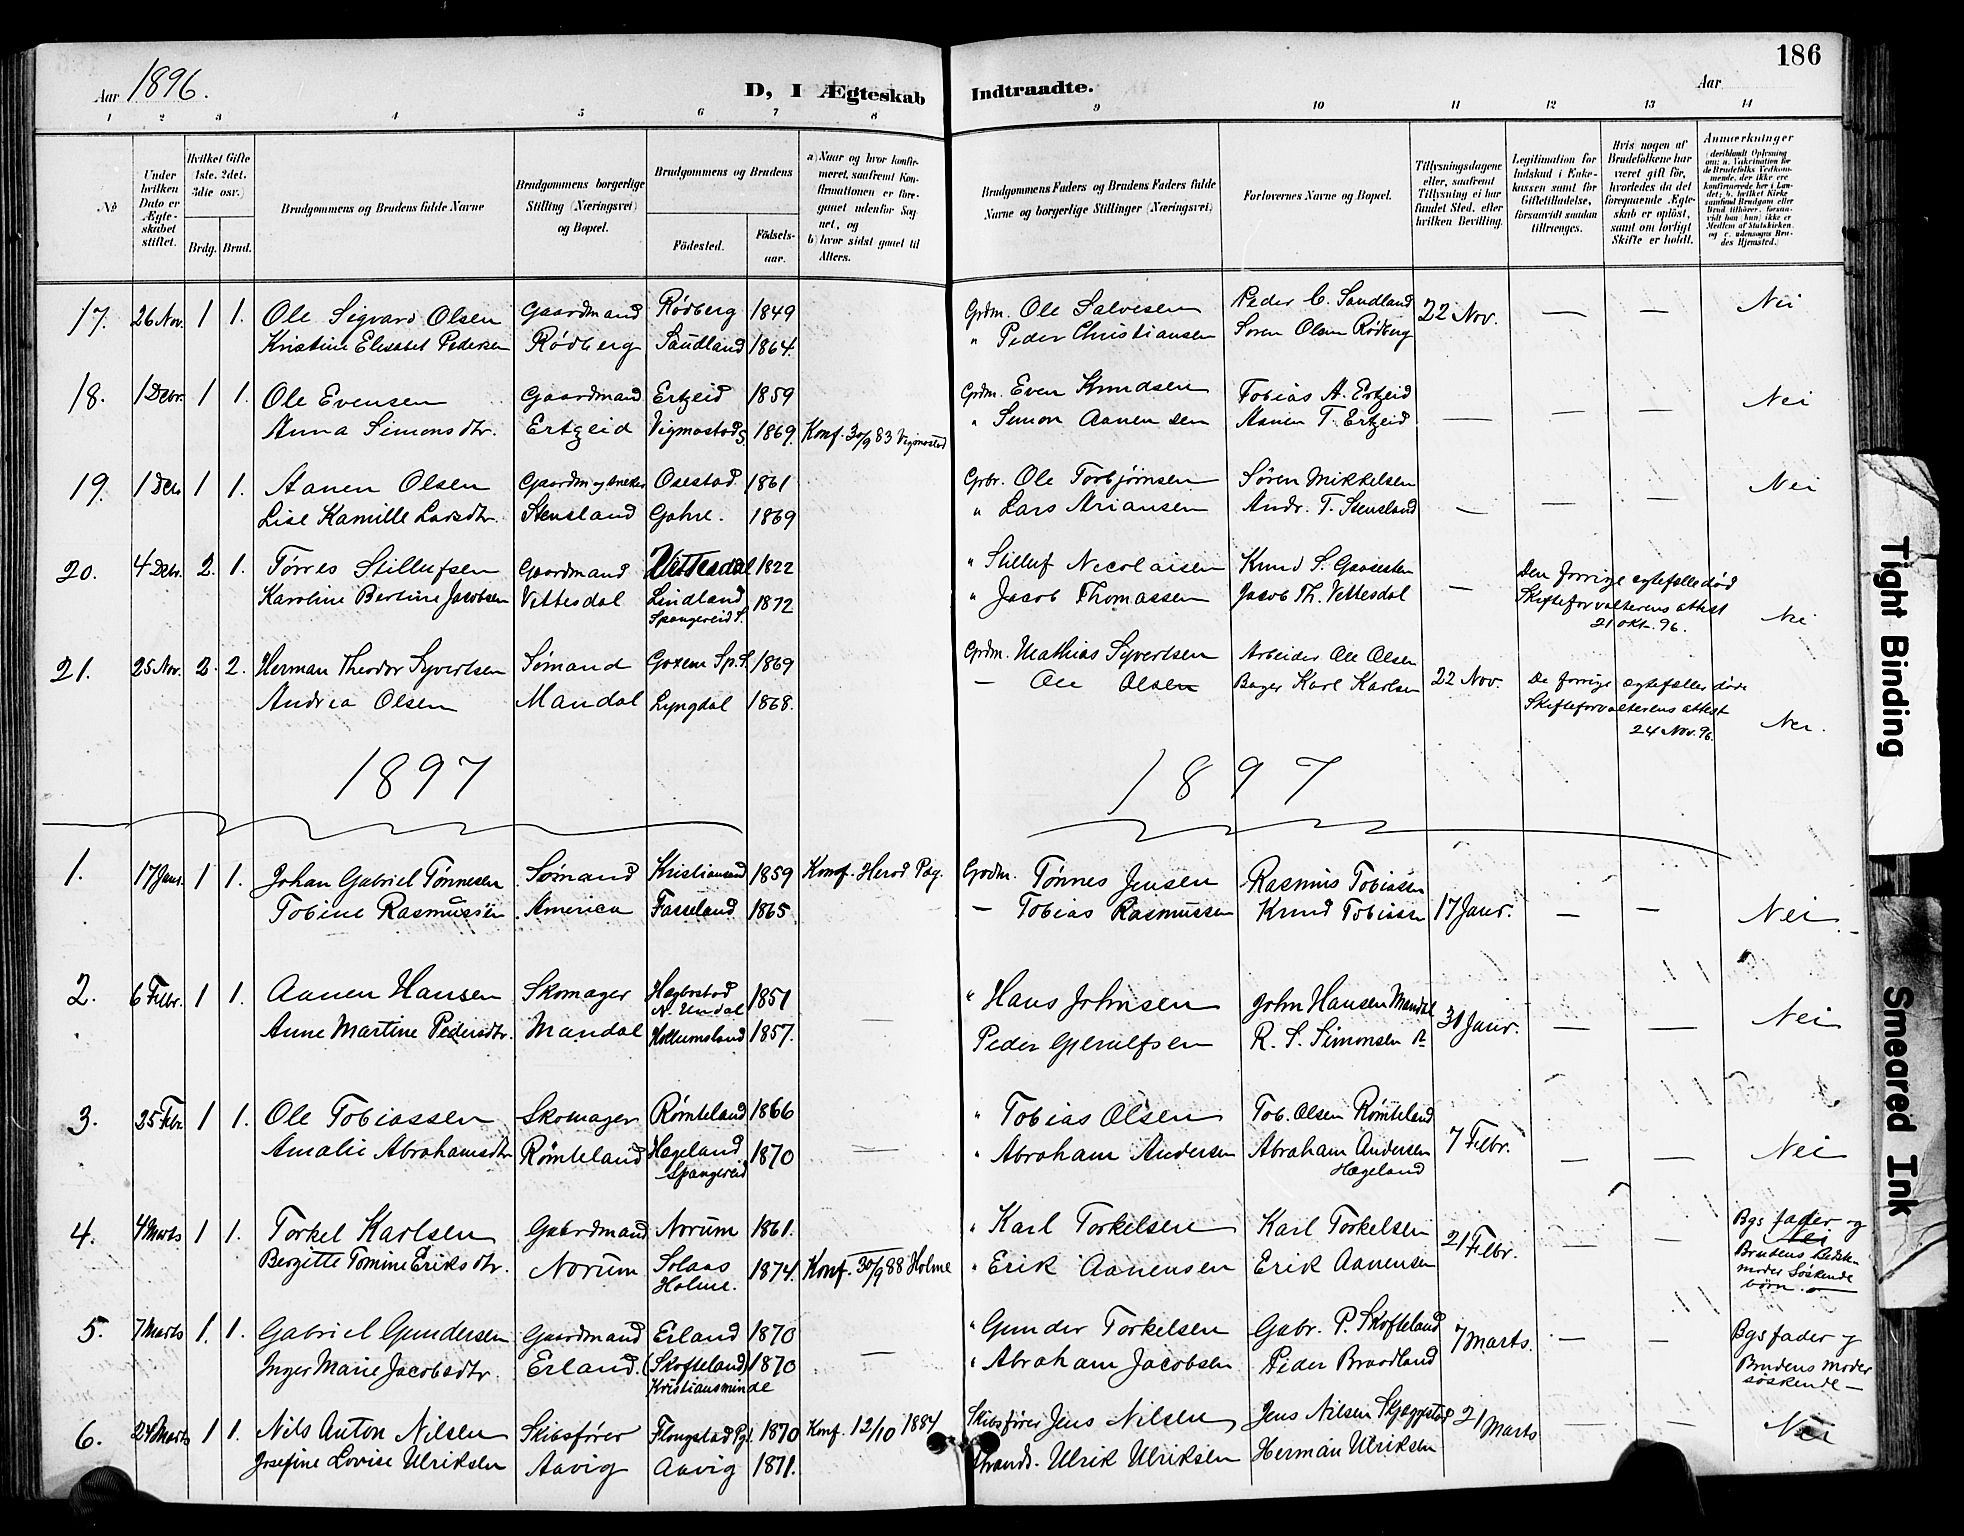 186
Aar 1896. D, I Ægteskab Indtraadte. Aar
1 2 3 4 5 6 7 8 9 10 11 12 13 14
No
Under hvilken Dato er Ægteskabet stiftet.
Hvilket Gifte 1ste. 2det. 3die osv.)
Brdg. Brud.
Brudgommens og Brudens fulde Navne
Brudgommens borgerlige Stilling (Næringsvei) og Bopæl.
Brudgommens og Brudens
Födested. Födsels-aar.
a) Naar og hvor konfirmeret, saafremt Konfirmationen er foregaaet udenfor Sognet, og
b) hvor sidst gaaet til Alters.
Brudgommens Faders og Brudens Faders fulde Navne og borgerlige Stillinger (Næringsvei)
Forlovernes Navne og Bopæl.
Tillysningsdagene eller, saafremt Tillysning ei har fundet Sted, efter hvilken Bevilling.
Legitimation for Indskud i Enkekassen samt for Giftetilladelse, forsaavidt saadan tiltrænges.
Hvis nogen af Brudefolkene har været gift før, hvorledes da det foregaaende Ægteskab er opløst, samt om lovligt Skifte er holdt.
Anmærkninger
17. 26 Nov. 1 1. Ole Sigvard Olsen Gaardmand Rödberg 1849 Grdm. Ole Salvesen Peder C. Sandland 22 Nov. — — Nei
Kristine Elisabet Pedersen Rödberg Sandland 1864. " Peder Christiansen Sören Olsen Rödberg
18. 1 Debr. 1 1. Ole Evensen Gaardmand Ertzeid 1859 Grdm. Even Knudsen Tobias A. Ertzeid — — Nei
Anna Simonsdtr. Ertzeid Vigmostad S. 1869. Konf. 30/9 83 Vigmostad " Simon Aanensen Aanen T. Ertzeid —
19. 1 Debr 1 1. Aanen Olsen Gaardm og snekker Osestad 1861 Grbr. Ole Torbjörnsen Sören Mikkelsen Nei
Lise Kamille Larsdtr. Stensland Gahre. 1869 " Lars Ariansen Andr. T. Stensland — — —
20. 4 Debr. 2. 1. Törres Stillufsen Gaardmand Vittesdal 1822 " Stilluf Nicolaisen Knud S. Den forrige ægtefælle död
Karoline Bertine Jacobsen Vittesdal Lindland 1872 " Jacob Thomassen Jacob Th. Vittesdal — Skifteforvalterens attest
Spangereid S. 21 Okt. 96. Nei
21. 25 Nov. 2. 2. Herman Theodor Syvertsen Sömand Sp. S. 1869 Grdm. Mathias Syvertsen Arbeider Ole Olsen
Andrea Olsen Mandal Lyngdal 1868. — Ole Olsen Bager Karl Karlsen 22 Nov. De forrige ægtefæller döde
Skifteforvalterens attest
24 Nov. 96. Nei.
1897 1897
1. 17 Janr. 1 1. Johan Gabriel Tönnesen Sömand Kristiansand 1859 Konf. Herod Pdg. Grdm. Tönnes Jensen Rasmus Tobiassen
Tobine Rasmussen America Fasseland 1865 — Tobias Rasmussen Knud Tobiassen 17 Janr. — — Nei.
2. 6 Febr. 1 1. Aanen Hansen Skomager Hægbostad 1851 " Hans Johnsen John Hansen Mandal
N. Undal — 31 Janr. — — Nei
Anne Martine Pedersdtr. Mandal Hollumsland 1857. Peder Gjerulfsen R. S. Simonsen
3. 25 Febr 1 1. Ole Tobiassen Skomager Römteland 1866 " Tobias Olsen Tob. Olsen Römteland
Amalie Abrahamsdtr Römteland Hægeland 1870 — " Abraham Andersen Abraham Andersen 7 Febr. — — Nei
Spangereid Hægeland
4. 4 Marts 1 1. Torkel Karlsen Gaardmand Norum 1861. " Karl Torkelsen Karl Torkelsen 21 Febr. — — Bgs fader og
Nei
Bergitte Tomine Eriksdtr. Norum Solaas 1874. Konf. 30/9 88 Holme " Erik Aanensen Erik Aanensen Brudens
Holme. moder Söskende
börn.
5. 7 Marts 1. 1. Gabriel Gundersen Gaardmand Erland 1870 " Gunder Torkelsen Gabr. P. Skofteland 7 Marts. — — Bgs fader og
Inger Marie Jacobsdtr. Erland. (Skofteland) 1870 — " Abraham Jacobsen Peder Braadland Brudens moder
Kristiansminde söskende —
6. 24 Marts 1 1. Nils Anton Nilsen Skibsförer Pgl. 1870 Konf. 12/10 1884 Skibsförer Jens Nilsen Jens Nilsen Skjæggestad 21 Marts — — Nei
Josefine Lovise Ulriksen Aavig Aavig 1871. Ulrik Ulriksen Herman Ulriksen
Tight Binding
Smeared Ink